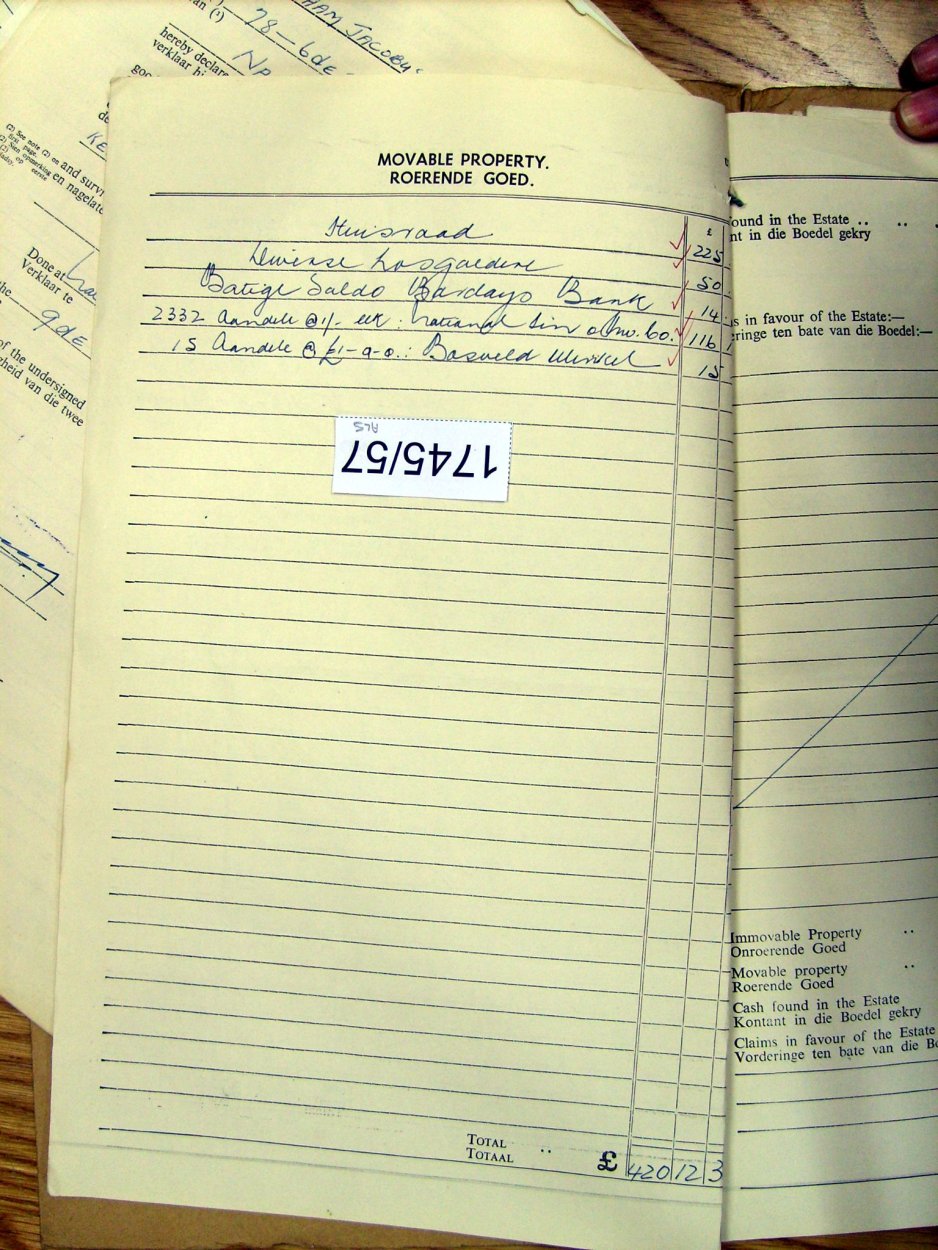 HAM JACOBUS
78 – 6de
hereby declare
verklaar hi
(2) See note (2) on
first page.
and survi
en nagelate
Done at
Verklaar te
9de
of the undersigned
heid van die twee
MOVABLE PROPERTY.
ROERENDE GOED.
£
Huisraad 225
Diverse Losgoedere 50
Batige Saldo Barclays Bank 14
2332 Aandele @ 1/- elk: National 60. 116
15 Aandele @ £1-0-0.: Bosveld Winkel 15
1745/57
ALS
TOTAL
TOTAAL .. £ 420 12 3
ound in the Estate .. ..
nt in die Boedel gekry
s in favour of the Estate:—
eringe ten bate van die Boedel:—
Immovable Property ..
Onroerende Goed
Movable property ..
Roerende Goed
Cash found in the Estate
Kontant in die Boedel gekry
Claims in favour of the Estate
Vorderinge ten bate van die Bo